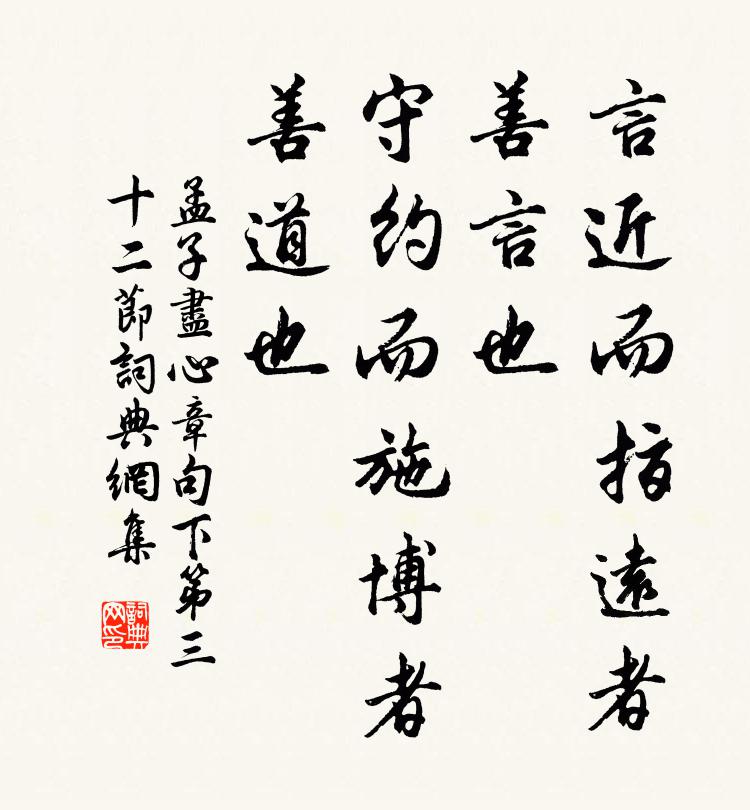 言近而指遠者
善言也
守約而施博者
善道也
孟子盡心章句下第三
十二節詞典網集
詞典
网印